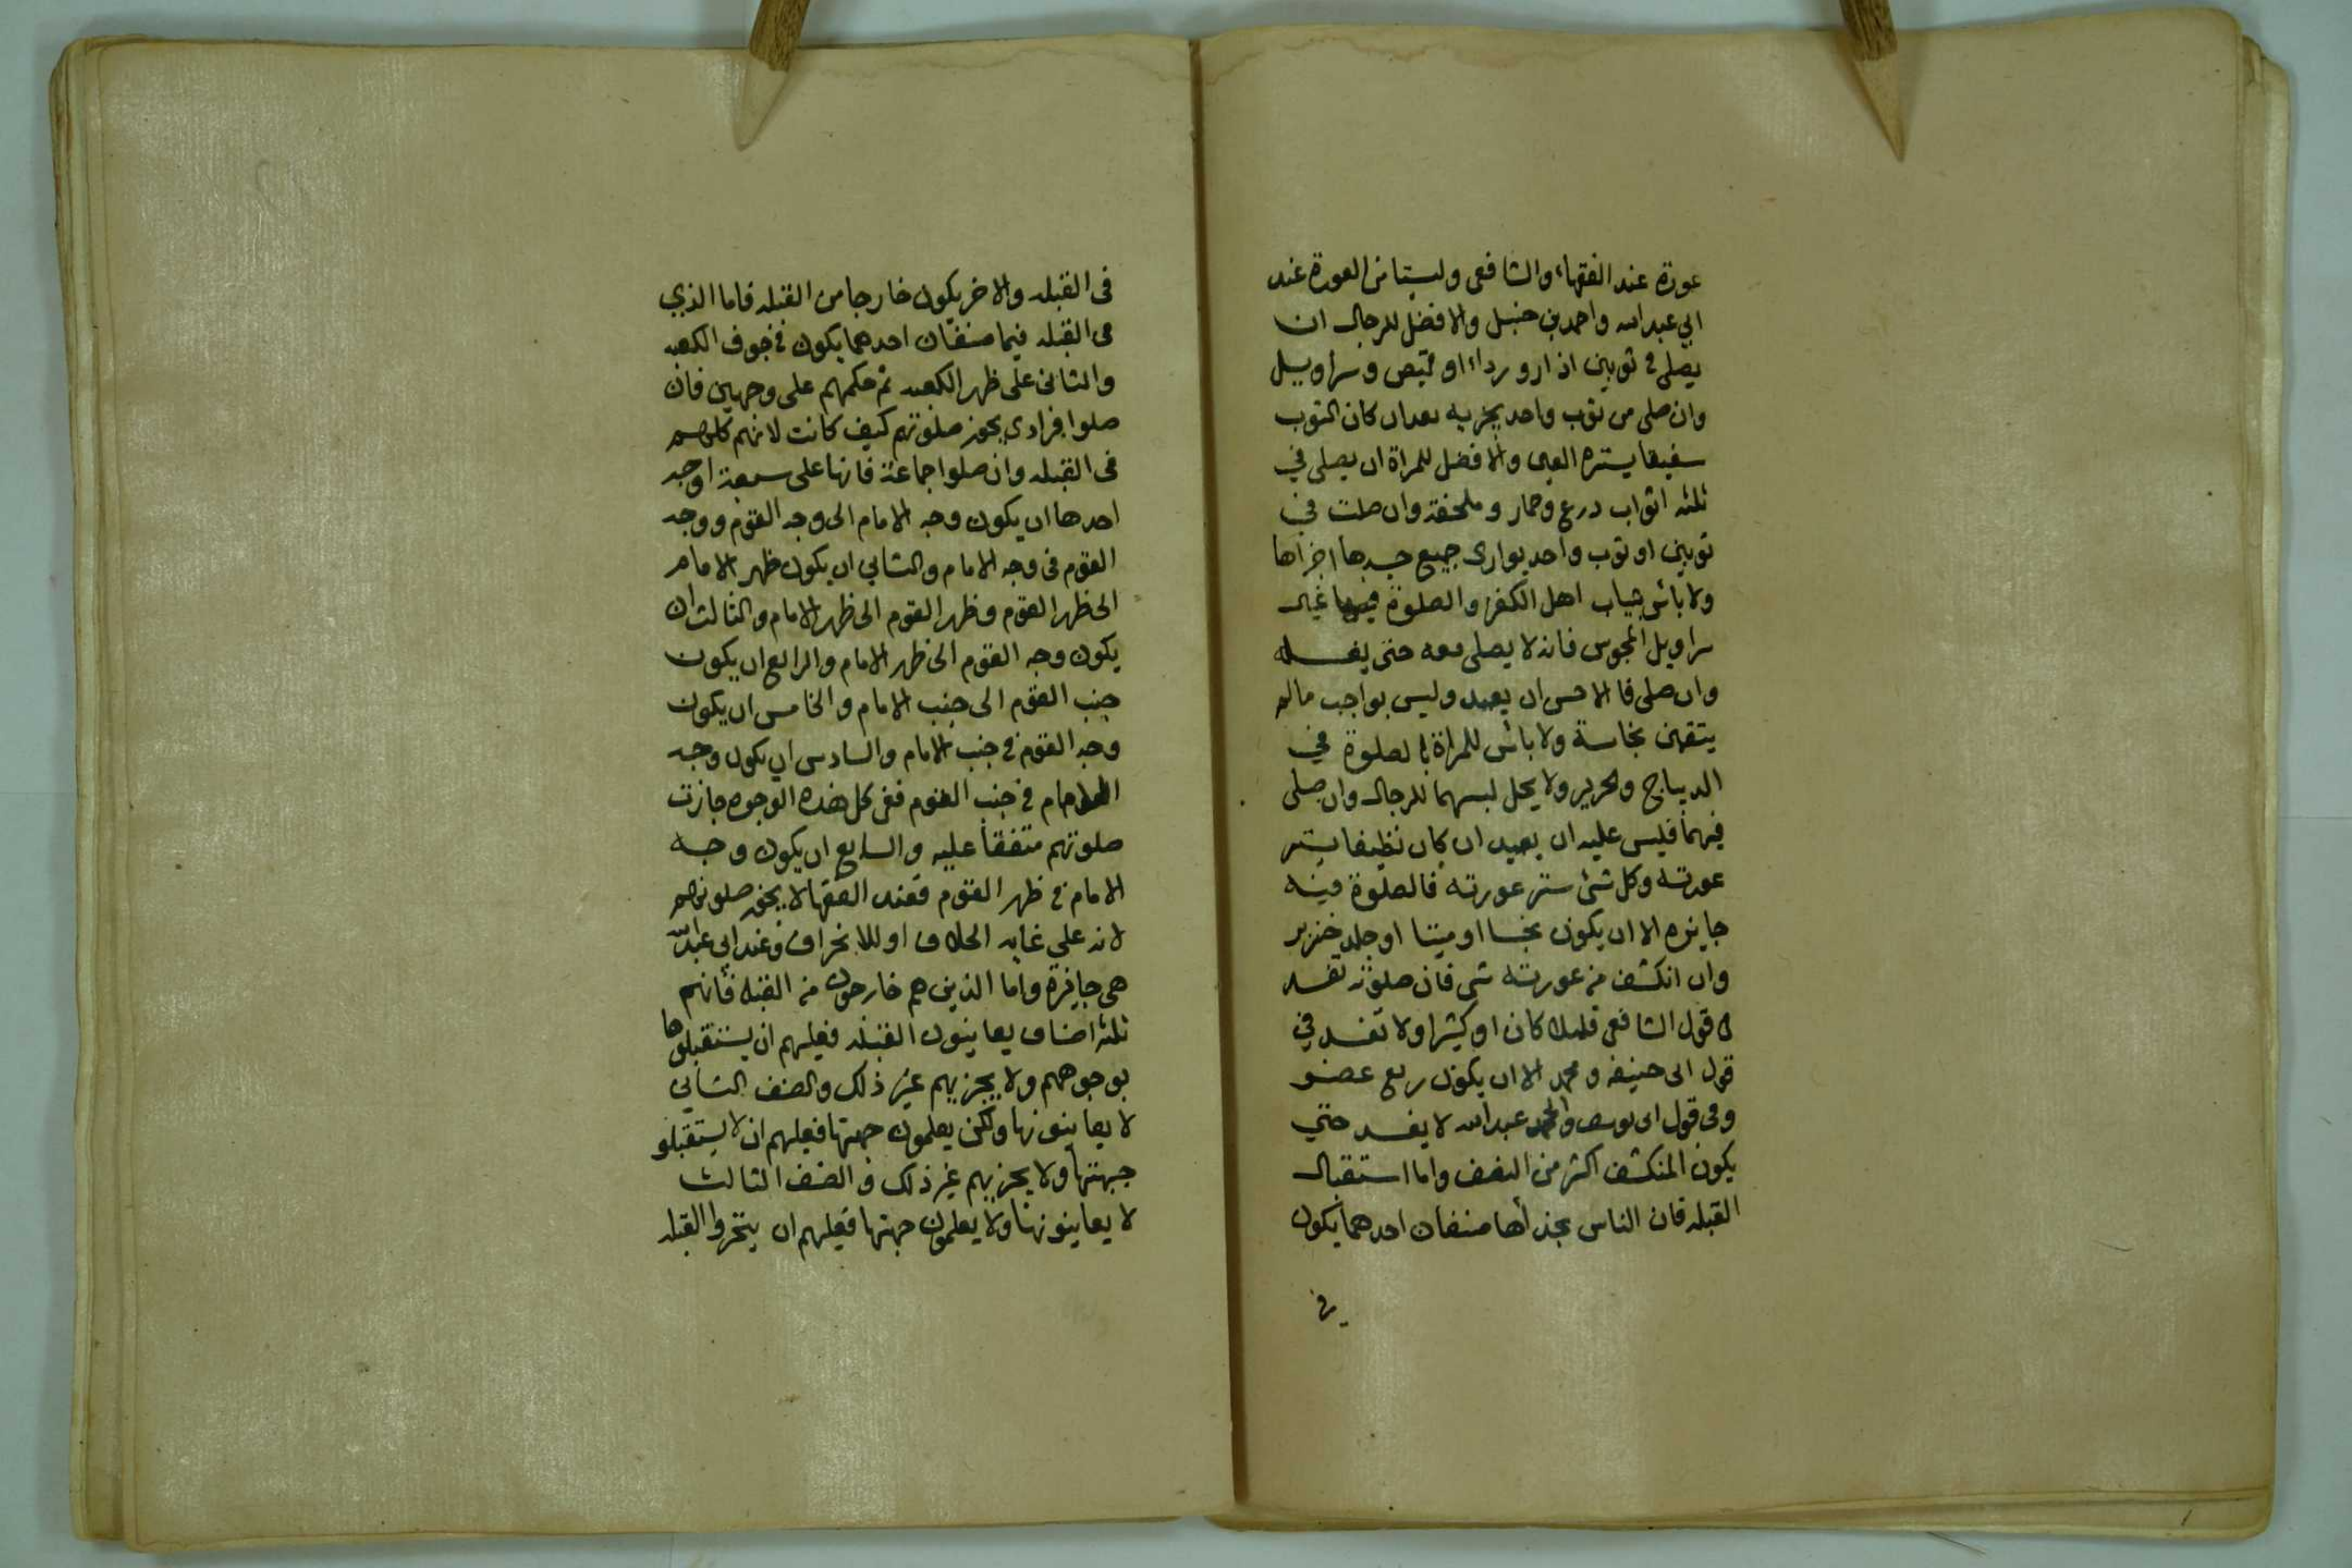 عورة عند الفقهاء والشافعى وليستا من العورة عند
ابي عبد الله واحمد بن حنبل والافضل للرجال ان
يصلى فى ثوبين ازار ورداء او قميص وسراويل
وان صلى من ثوب واحد يجزيه بعد ان كان الثوب
سفيقا يستره العى والافضل للمراة ان يصلى في
ثلثه اثواب درع وخمار وملحفة وان صلت في
ثوبين او ثوب واحد يوارى جميع جسدها اجزاها
ولا باس بثياب اهل الكفر والصلوة فيها غير
سراويل المجوس فانه لا يصلى معه حتى يغسله
وان صلى فالاحسن ان يعيد وليس بواجب مالم
يتقين نجاسة ولا باس للمراة بالصلوة في
الديباج والحرير ولا يحل لبسهما للرجال وان صلى
فيهما فليس عليه ان يعيد ان كان نظيفا يستر
عورته وكل شئ ستر عورته فالصلوة فيه
جايزه الا ان يكون نجسا او ميتا او جلد خنزير
وان انكشف من عورته شى فان صلوته تفسد
فى قول الشافعى قليلا كان او كثيرا ولا تفسد في
قول ابى حنيفه ومحمد الا ان يكون ربع عضو
وفى قول ابى يوسف عبد الله لا يفسد حتي
يكون المنكشف اكثر من النصف واما استقبال
القبله فان الناس بحذاها صنفان احدهما يكون
في
فى القبله والاخر يكون خارجا من القبله فاما الذي
فى القبله فهما صنفان احدهما يكون في جوف الكعبه
والثانى على ظهر الكعبه ثم حكمهم على وجهين فان
صلوا فرادي يجوز صلوتهم كيف كانت لانهم كلهم
فى القبله وان صلوا جماعة فانها على سبعة اوجه
احدها ان يكون وجه الامام الى وجه القوم ووجه
القوم فى وجه الامام والثاني ان يكون ظهر الامام
الى ظهر القوم وظهر القوم الى ظهر الامام والثالث ان
يكون وجه القوم الى ظهر الامام والرابع ان يكون
جنب القوم الى جنب الامام والخامس ان يكون
وجه القوم في جنب الامام والسادس ان يكون وجه
الامام في جنب القوم ففى كل هذه الوجوه جازت
صلوتهم متفقا عليه والسابع ان يكون وجه
الامام في ظهر القوم فعند الفقها لا يجوز صلوتهم
لانه علي غايه الخلاف او للانحراف وعند ابى عبد الله
هى جايزة واما الذين هم خارجون من القبله فانهم
ثلثه اصناف يعاينون القبله فعليهم ان يستقبلوها
بوجوههم ولا يجزيهم غير ذلك والصنف الثاني
لا يعاينونها ولكن يعلمون جهتها فعليهم ان لا يستقبلو
جهتها ولا يجزيهم غير ذلك والصنف الثالث
لا يعاينونها ولا يعلمون جهتها فعليهم ان يتحروا القبله